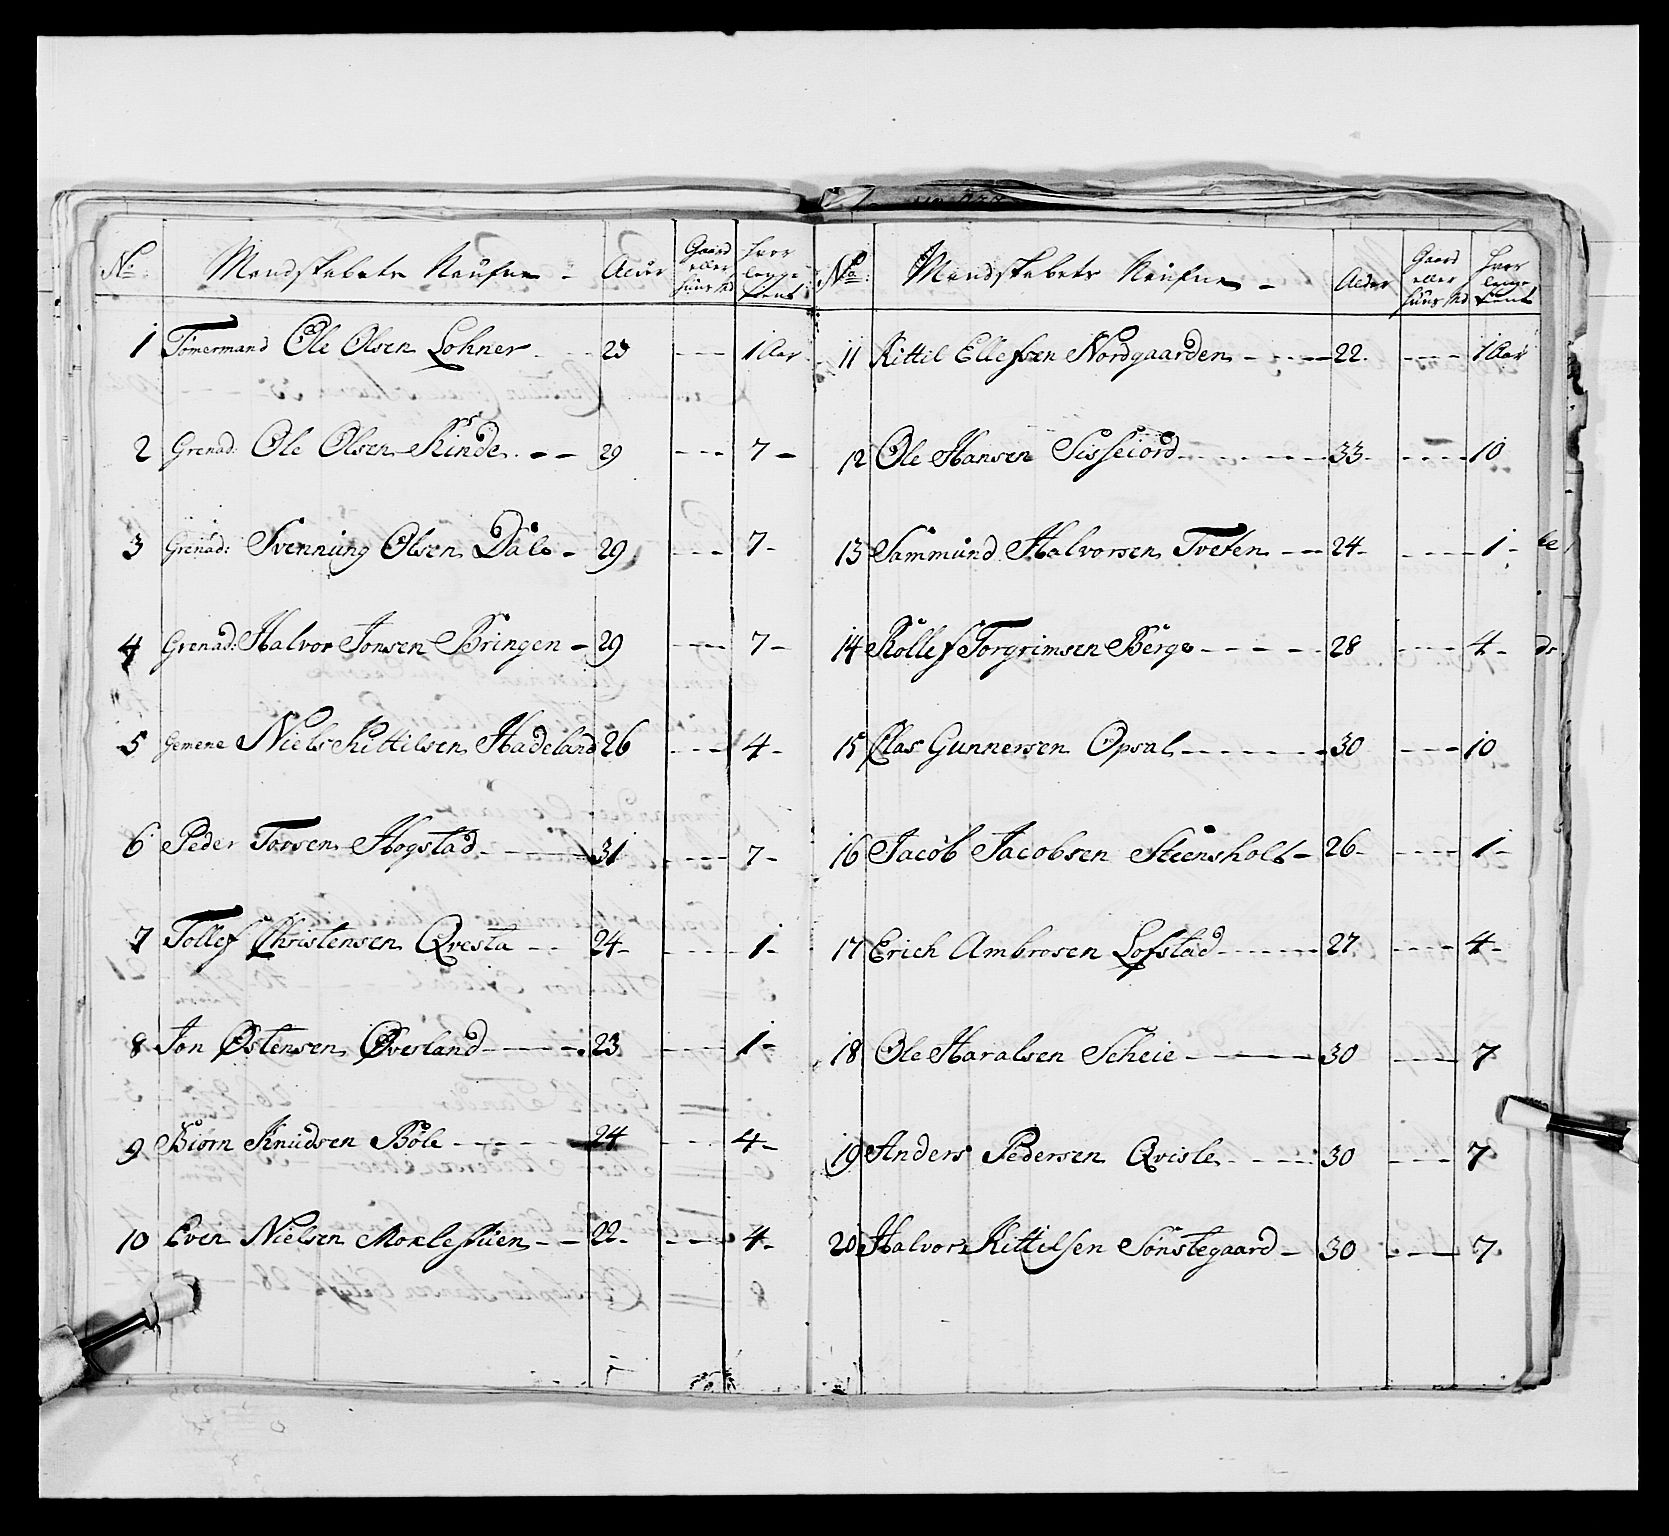 No: Mandskabets Naufne - Alder Gaard eller huus Md hvor lenge tient
1 Tömermand Ole Olsen Lohner - 23 - - - 1 Aar
2 Grenad: Ole Olsen Rinde - - 29 - - - 7 -
3 Grenad: Svennung Olsen Dale - 29 - - - 7 -
4 Grenad: Halvor Jonsen Bringen - 29 - - - 7 -
5 Gemene Niels Kittilsen Hadeland 26 - - - 4 -
6 Peder Torsen Hogstad - 31 - - - 7 -
7 Tollef Christensen Qvesta - - 24 - - - - 1 -
8 Jon Østensen Øverland - - - 23 - - - 1 -
9 Biörn Knudsen Böle - - - - 24 - - - 4 -
10 Even Nielsen Moxlestuen - - 22 - - - - 4 -
No: Mandskabets Naufne - Alder Gaard eller huus Md hvor lenge tient
11 Kittil Ellefsen Nordgaarden - - - 22. - - - - 1 Aar
12 Ole Hansen Sisseiord - - - - 33 - - - - 10
13 Sammund Halvorsen Tveten - - 24 - - - - - 1 -
14 Rollef Torgrimsen Berge - - - - 28 - - - - 4 -
15 Clas Gunnersen Opsal - - - - - 30 - - - 10
16 Jacob Jacobsen Steensholt - 26 - - - - - 1 -
17 Erich Ambrosen Lofstad - - - - 27 - - - - 4 -
18 Ole Haralsen Scheie - - - 30 - - - 7
19 Anders Pedersen Qvisle - - - - 30 - - - 7
20 Halvor Kittelsen Sönstegaard - 30 - - - 7